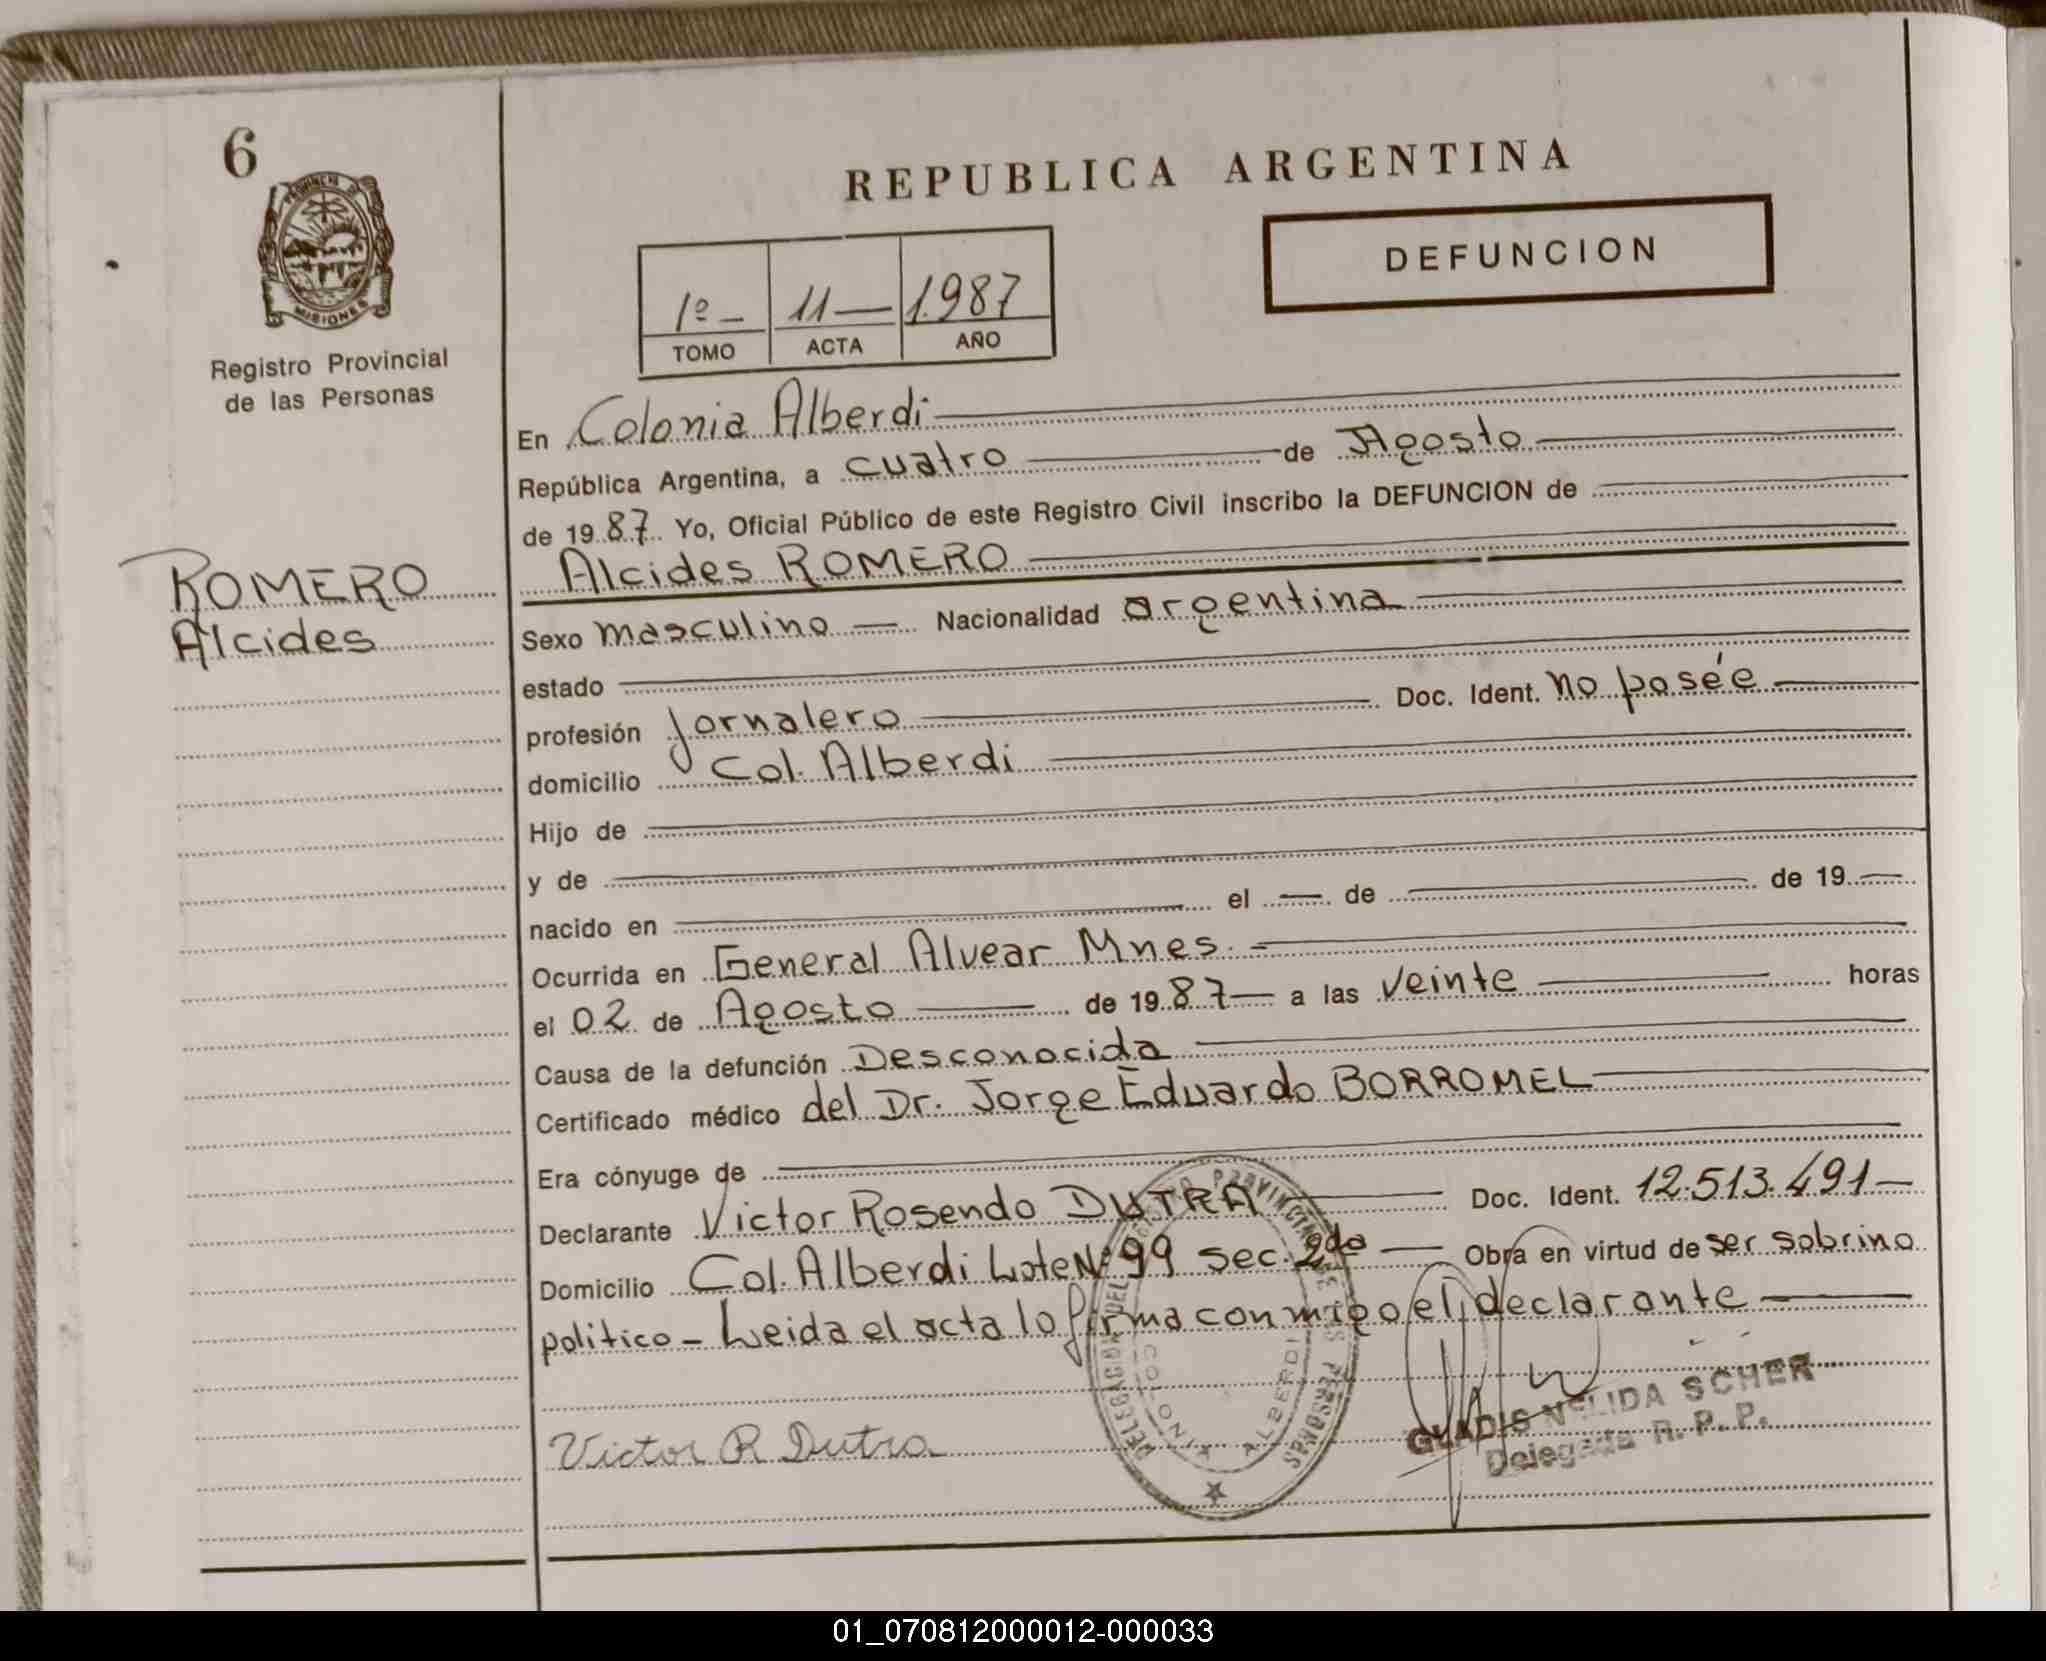 6
PROVINCIA DE
MISIONES
Registro Provincial
de las Personas
REPUBLICA ARGENTINA
DEFUNCION
1º - 11 — 1.987
TOMO ACTA AÑO
En Colonia Alberdi
República Argentina, a cuatro de Agosto
de 19 87 Yo, Oficial Público de este Registro Civil inscribo la DEFUNCION de
Alcides ROMERO
ROMERO
Alcides
Sexo masculino — Nacionalidad argentina
estado
profesión Jornalero Doc. Ident. no posée
domicilio Col. Alberdi
Hijo de
y de
nacido en el — de de 19 —
Ocurrida en General Alvear Mnes.
el 02 de Agosto de 19 87 — a las veinte horas
Causa de la defunción Desconocida
Certificado médico del Dr. Jorge Eduardo BORROMEL
Era cónyuge de
Declarante Victor Rosendo DUTRA Doc. Ident. 12.513.491 —
Domicilio Col. Alberdi Lote Nº 99 sec. 2da — Obra en virtud de ser sobrino
politico - Leida el acta lo firma conmigo el declarante
Victor R Dutra
DELEGACION DEL REGISTRO PROVINCIAL DE LAS PERSONAS
COLONIA ALBERDI
GLADIS NELIDA SCHER
Delegada R. P. P.
01_070812000012-000033